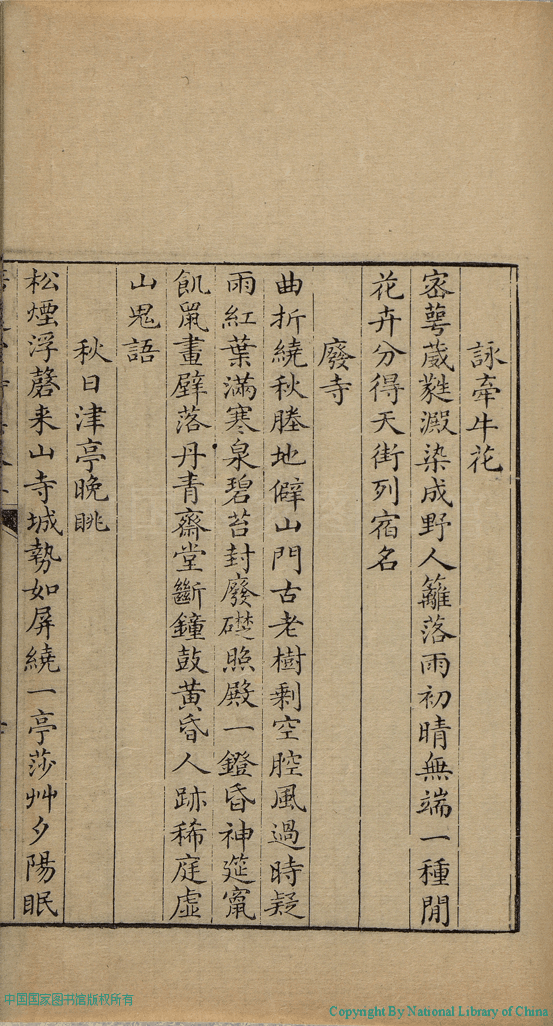 詠牽牛花
密萼葳蕤澱染成野人籬落雨初晴無端一種閒
花卉分得天街列宿名
廢寺
曲折繞秋塍地僻山門古老樹剩空腔風過時疑
雨紅葉滿寒泉碧苔封廢礎照殿一鐙昏神筵竄
飢鼠畫壁落丹青齋堂斷鐘鼓黃昏人跡稀庭虛
山鬼語
秋日津亭晚眺
松煙浮磬来山寺城勢如屏繞一亭莎艸夕陽眠
中国国家图书馆版权所有
Copyright By National Library of China